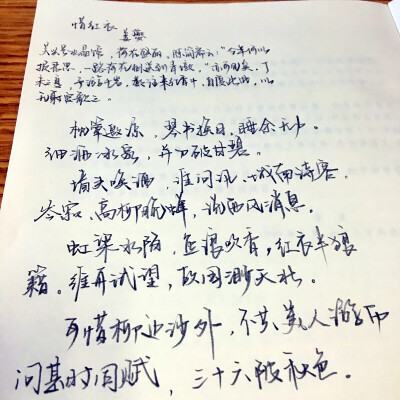 惜红衣
姜夔
吴兴号水晶宫，荷花盛丽，陈简斋云：“今年何以
报君恩，一路荷花相送到青墩，”亦可见矣，丁
未之夏，予游千岩，数往来红香中，自度此曲，以
无射宫歌之。
枕簟邀凉，琴书换日，睡余无力。
细洒冰泉，并刀破甘碧。
墙头唤酒，谁问讯，城南诗客，
岑寂，高柳晚蝉，说西风消息。
虹梁水陌，鱼浪吹香，红衣半狼
籍。维舟试望，故国渺天北。
可惜柳边沙外，不共美人游历
问甚时同赋，三十六陂秋色。